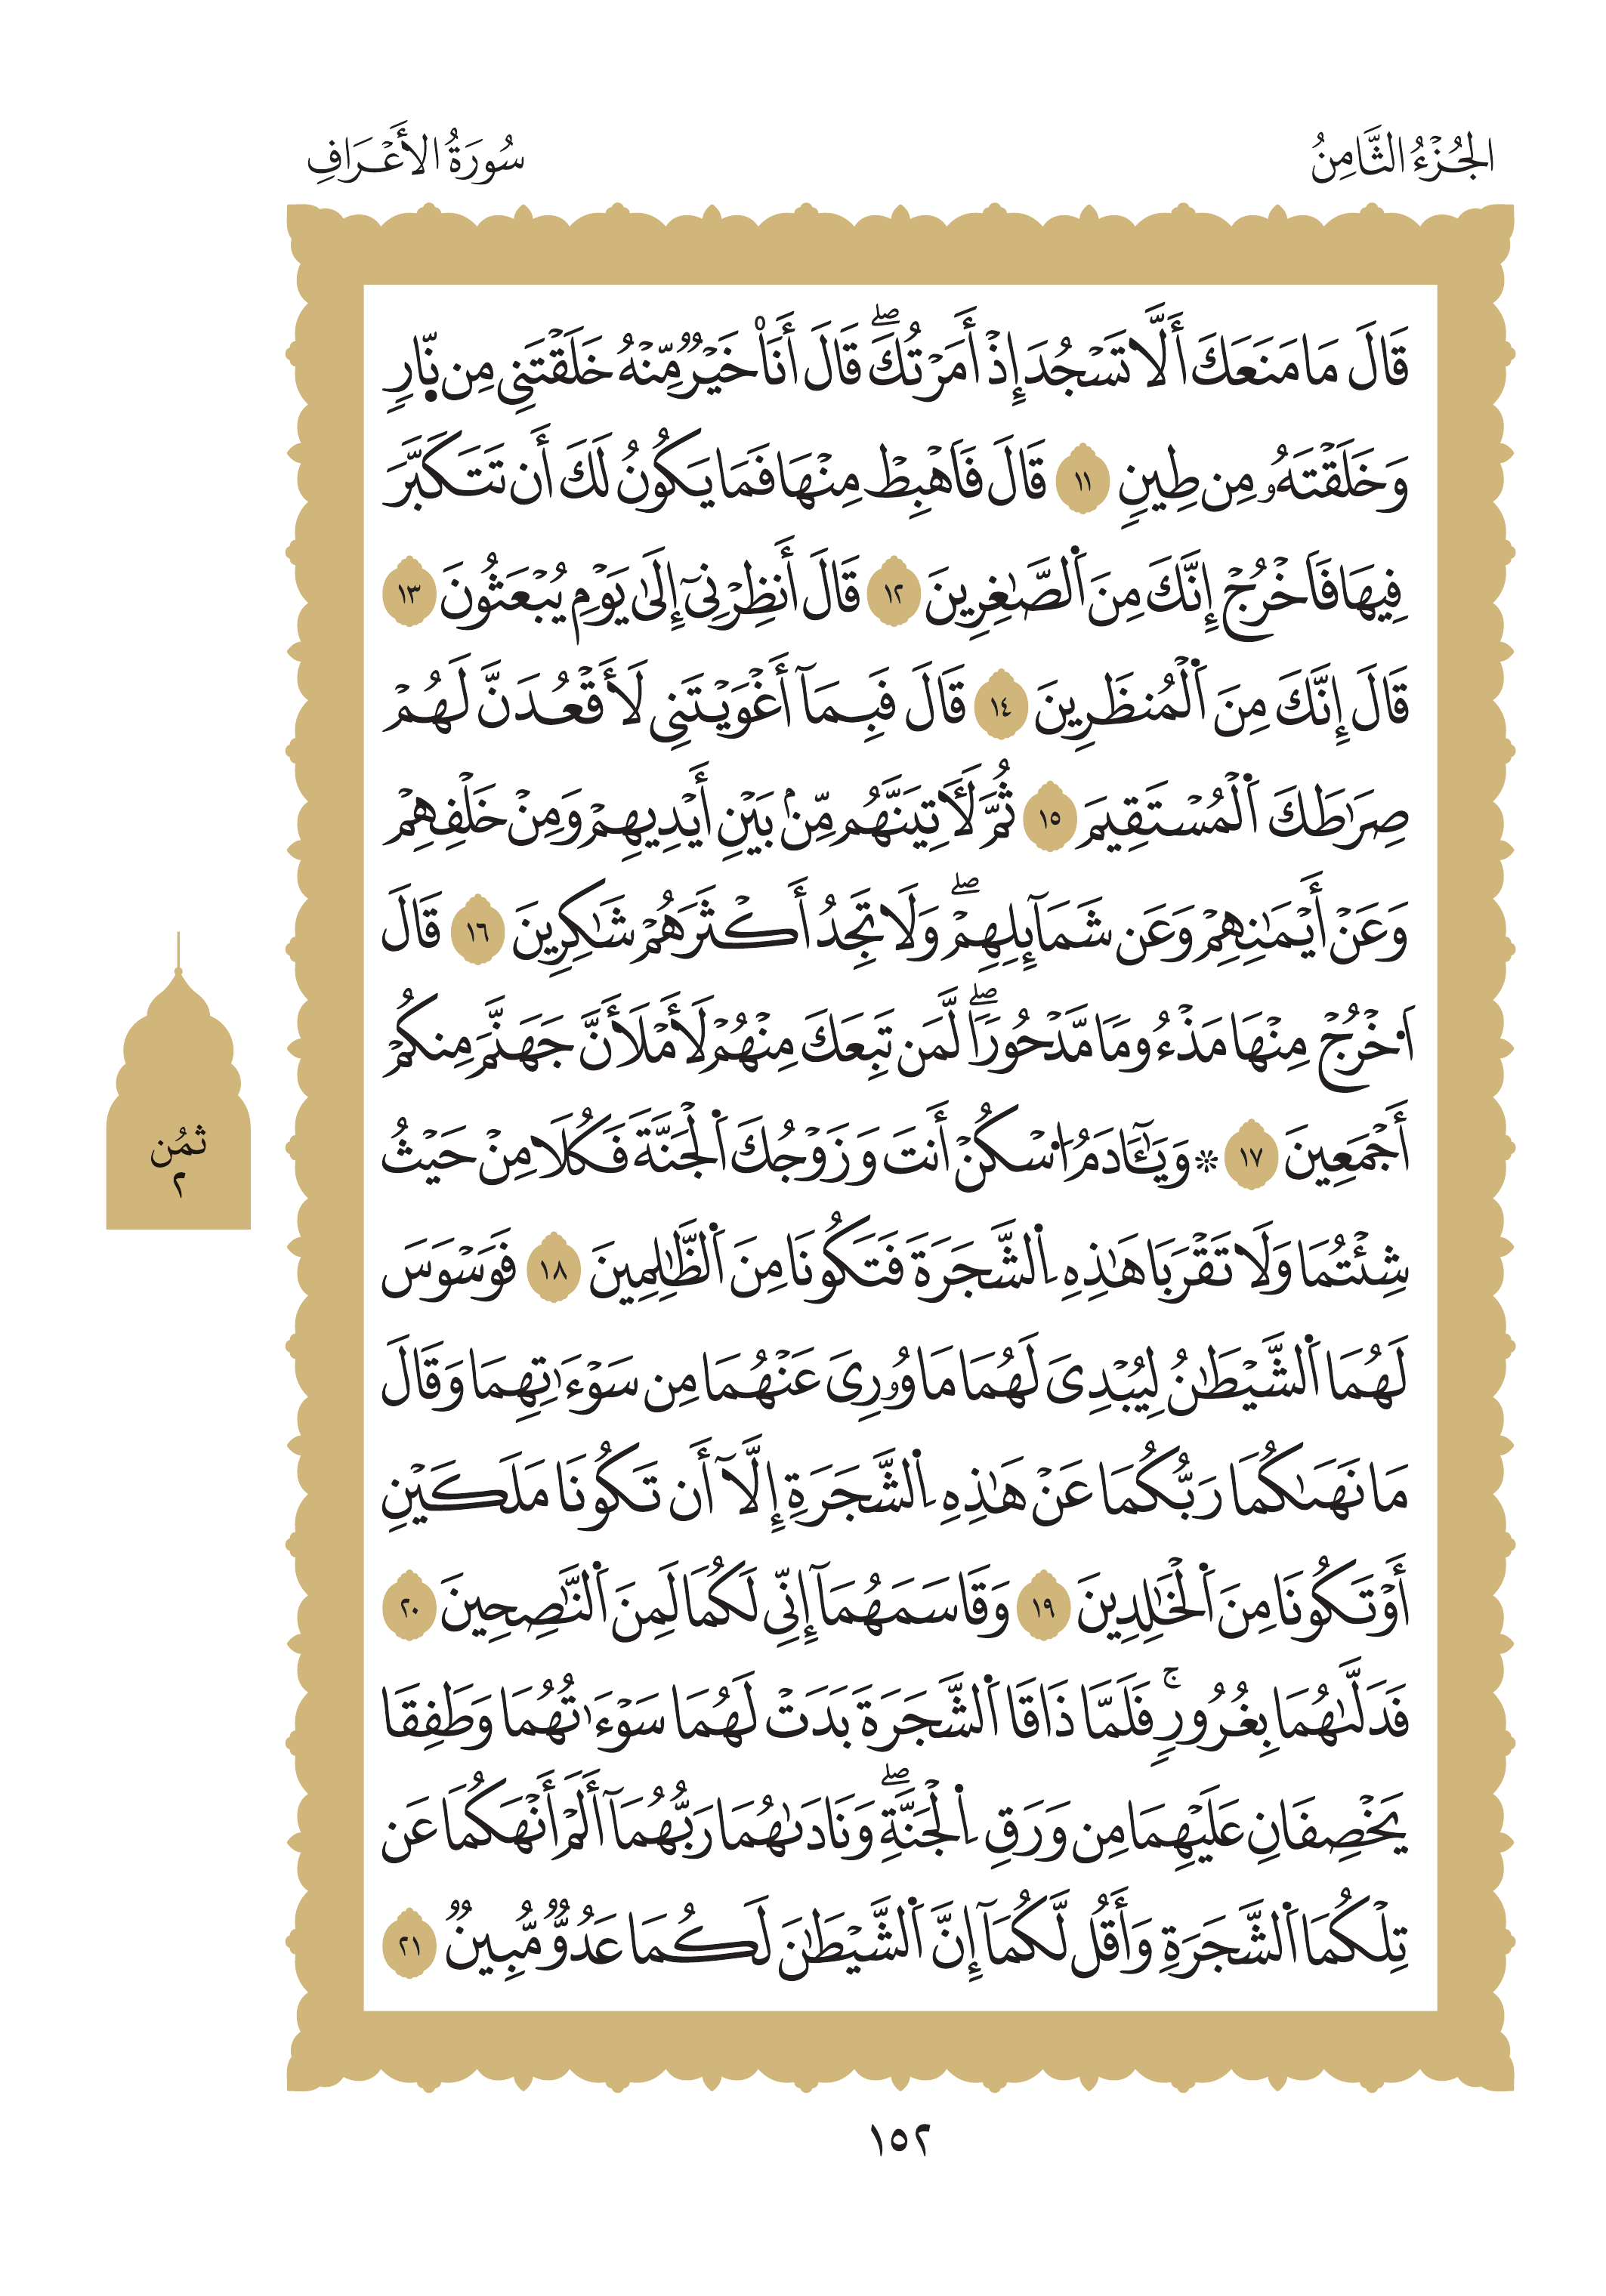 الجُزْءُ الثَّامِنُ
سُورَةُ الأَعْرَافِ
قَالَ مَا مَنَعَكَ أَلَّا تَسْجُدَ إِذْ أَمَرْتُكَۖ قَالَ أَنَا۠ خَيْرٌ مِّنْهُ خَلَقْتَنِى مِن نّ۪ارٍ
وَخَلَقْتَهُۥ مِن طِينٍ ١١ قَالَ فَاهْبِطْ مِنْهَا فَمَا يَكُونُ لَكَ أَن تَتَكَبَّرَ
فِيهَا فَاخْرُجْ إِنَّكَ مَنَ اَ۬لصَّٰغِرِينَ ١٢ قَالَ أَنظِرْنِىٓ إِلَىٰ يَوْمِ يُبْعَثُونَ ١٣
قَالَ إِنَّكَ مِنَ اَ۬لْمُنظَرِينَ ١٤ قَالَ فَبِمَآ أَغْوَيْتَنِى لَأَقْعُدَنَّ لَهُمْ
صِرَٰطَكَ اَ۬لْمُسْتَقِيمَ ١٥ ثُمَّ لَأٓتِيَنَّهُم مِّنۢ بَيْنِ أَيْدِيهِمْ وَمِنْ خَلْفِهِمْ
وَعَنْ أَيْمَٰنِهِمْ وَعَن شَمَآئِلِهِمْۖ وَلَا تَجِدُ أَكْثَرَهُمْ شَٰكِرِينَ ١٦ قَالَ
اَ۟خْرُجْ مِنْهَا مَذْءُومًا مَّدْحُورًاۖ لَّمَن تَبِعَكَ مِنْهُمْ لَأَمْلَأَنَّ جَهَنَّمَ مِنكُمْ
أَجْمَعِينَ ١٧ ۞ وَيَٰٓـَٔادَمُ اُ۟سْكُنْ أَنتَ وَزَوْجُكَ اَ۬لْجَنَّةَ فَكُلَا مِنْ حَيْثُ
شِئْتُمَا وَلَا تَقْرَبَا هَٰذِهِ اِ۬لشَّجَرَةَ فَتَكُونَا مِنَ اَ۬لظَّٰلِمِينَ ١٨ فَوَسْوَسَ
لَهُمَا اَ۬لشَّيْطَٰنُ لِيُبْدِىَ لَهُمَا مَا وُۥرِىَ عَنْهُمَا مِن سَوْءَٰتِهِمَا وَقَالَ
مَا نَهَىٰكُمَا رَبُّكُمَا عَنْ هَٰذِهِ اِ۬لشَّجَرَةِ إِلَّآ أَن تَكُونَا مَلَكَيْنِ
أَوْ تَكُونَا مِنَ اَ۬لْخَٰلِدِينَ ١٩ وَقَاسَمَهُمَآ إِنِّى لَكُمَا لَمِنَ اَ۬لنَّٰصِحِينَ ٢٠
فَدَلَّىٰهُمَا بِغُرُورٍۚ فَلَمَّا ذَاقَا اَ۬لشَّجَرَةَ بَدَتْ لَهُمَا سَوْءَٰتُهُمَا وَطَفِقَا
يَخْصِفَانِ عَلَيْهِمَا مِن وَرَقِ اِ۬لْجَنَّةِۖ وَنَادَىٰهُمَا رَبُّهُمَآ أَلَمْ أَنْهَكُمَا عَن
تِلْكُمَا اَ۬لشَّجَرَةِ وَأَقُل لَّكُمَآ إِنَّ اَ۬لشَّيْطَٰنَ لَكُمَا عَدُوٌّ مُّبِينٌ ٢١
ثمُن
٢
١٥٢